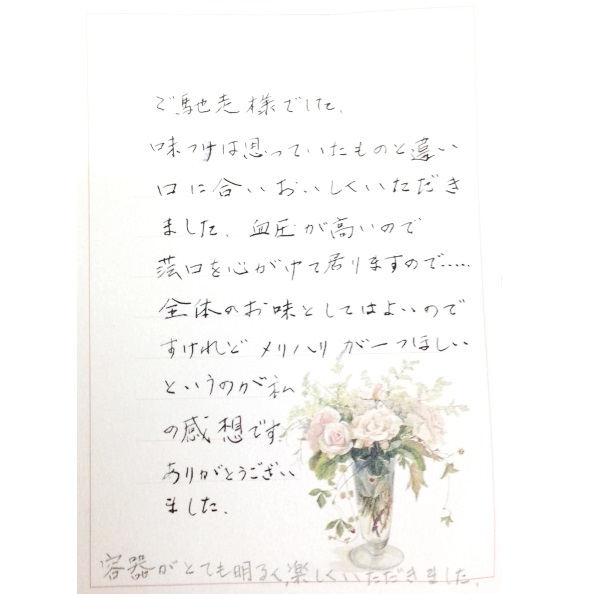 ご馳走様でした、
味つけは思っていたものと違い
口に合いおいしくいただき
ました、血圧が高いので
薄口を心がけて居りますので.....
全体のお味としてはよいので
すけれどメリハリが一つほしい
というのが私
の感想です。
ありがとうござい
ました。
容器がとても明るく、楽しくいただきました。